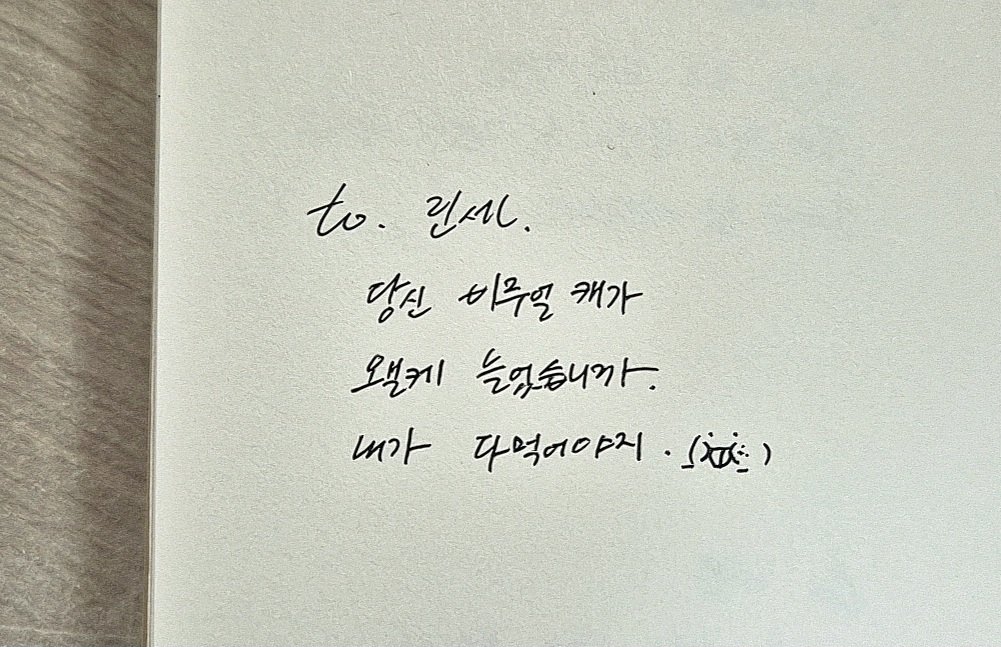 to. 린세.
당신 비쥬얼 캐가
왤케 늘었습니까.
내가 다먹어야지.